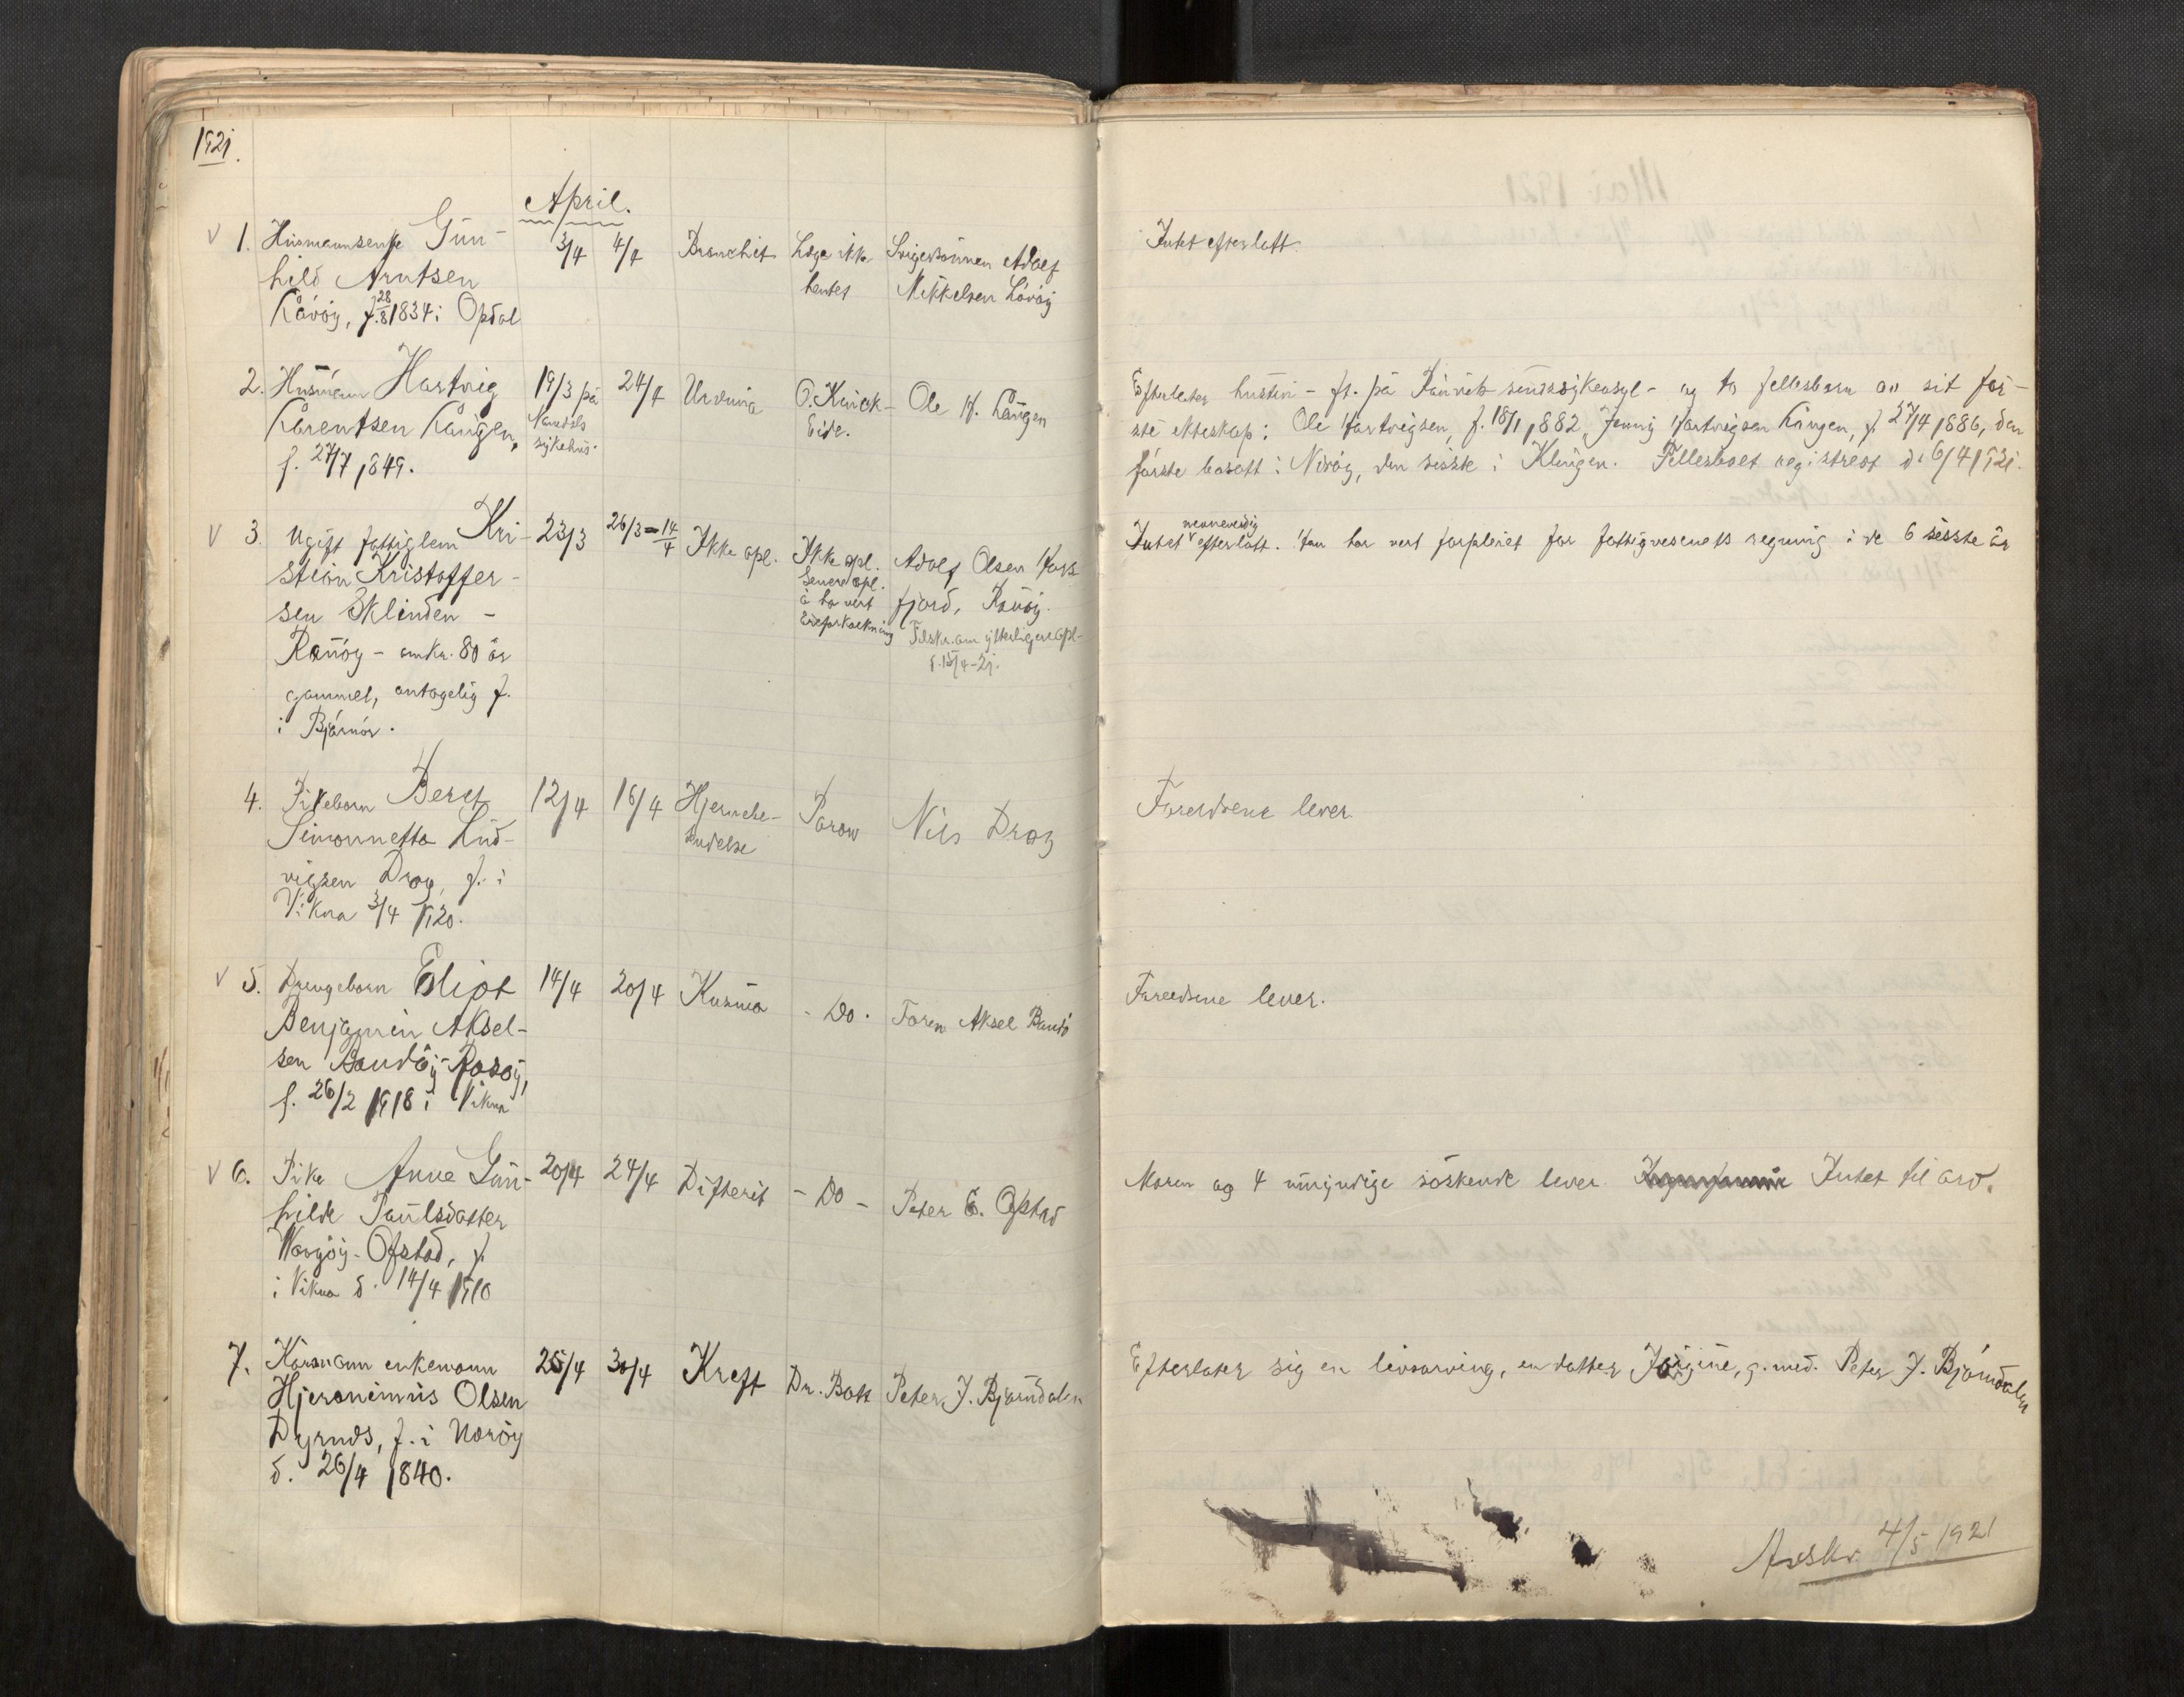 1921.
April.
1. Husmannsenke Gun-
hild Arntsen
Kåvöy, f. 28/8 1834 i Opdal
3/4
4/4
Bronchit
Læge ikke
hentet
Svigersönnen Adolf
Mikkelsen Lövöy
Intet efterlatt.
2. Husmann Hartvig
Larentsen Lången,
f. 27/7 1849.
19/3 på
Namdals
sykehus.
24/4
Urämia
O. Kinck-
Eide.
Ole H. Lången
Efterlater hustru - ft. på sinssykeasyl - og to fellesbarn av sit för-
ste ekteskap: Ole Hartvigsen, f. 18/1 1882, Jenny Hartvigsen Lången, f. 27/4 1886, den
förste bosatt i Nåröy, den sisste i Klingen. Fellesboet registrert d. 6/4 1921.
3. Ugift fattiglem Kri-
stian Kristoffer-
sen Eklinden -
Ramöy - omkr. 80 år
gammel, antagelig f.
i Björnör.
23/3
26/3 = 14/4
Ikke opl.
Ikke opl.
Senere opl.
å ha vert
Adolf Olsen Hors-
fjord, Ramöy.
Tilskr. om ytterligere opl.
d. 15/4-21.
nevneverdig
Intet efterlatt. Han har vert forpleiet for fattigvesenets regning i de 6 sisste år
4. Pikebarn Beret
Simonnetta Lud-
vigsen Drag, f. i
Vikna 3/4 1920.
12/4
16/4
Hjernebe-
tendelse
Parow
Nils Drag
Foreldrene lever.
5. Drengebarn Eliot
Benjamin Aksel-
sen Sandöy-Rosöy,
f. 26/2 1918 i Vikna
14/4
20/4
Kusma
- Do.
Faren Aksel Sandö
Foreldrene lever.
6. Pike Anne Gun-
hilde Paulsdatter
Vargöy-Ofstad, f.
i Vikna d. 14/4 1910
20/4
24/4
Difterit
- Do -
Peter E. Ofstad
Moren og 4 umyndige söskende lever. Intet til arv.
7. Kårmann enkemann
Hjeronimus Olsen
Dyrnes, f. i Næröy
d. 26/4 1840.
25/4
30/4
Kreft
Dr. Bott
Peter J. Björndalen
Efterlater sig en livsarving, en datter Jörgine, g. med. Peter J. Björndalen
Avskr. 4/5 1921